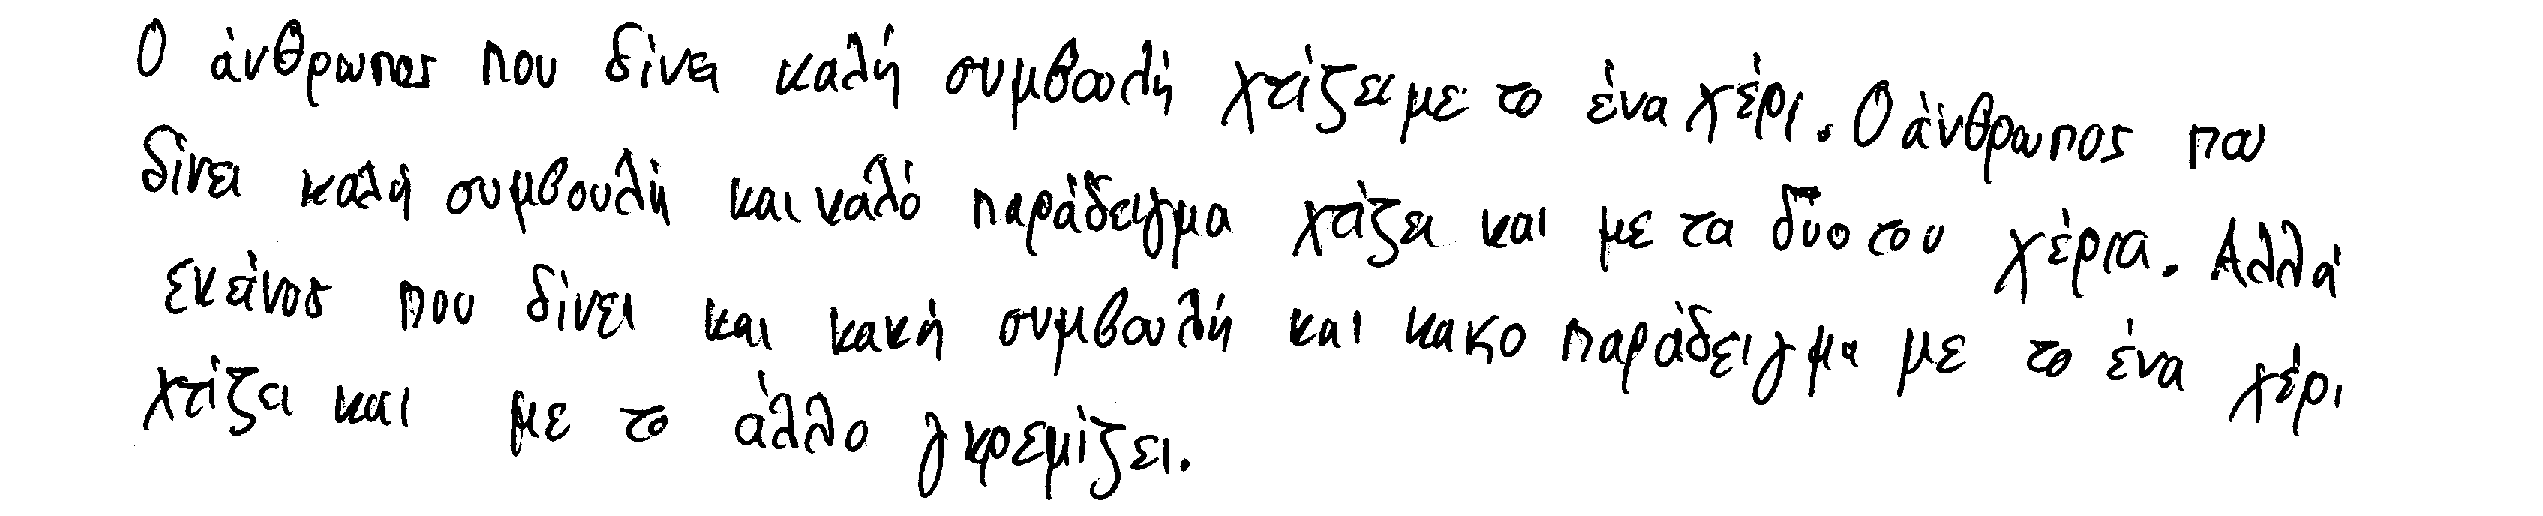 Ο άνθρωπος που δίνει καλή συμβουλή χτίζει με το ένα χέρι. Ο άνθρωπος που
δίνει καλή συμβουλή και καλό παράδειγμα χτίζει και με τα δύο του χέρια. Αλλά
εκείνος που δίνει και κακή συμβουλή και κακο παράδειγμα με το ένα χέρι
χτίζει και με το άλλο γκρεμίζει.